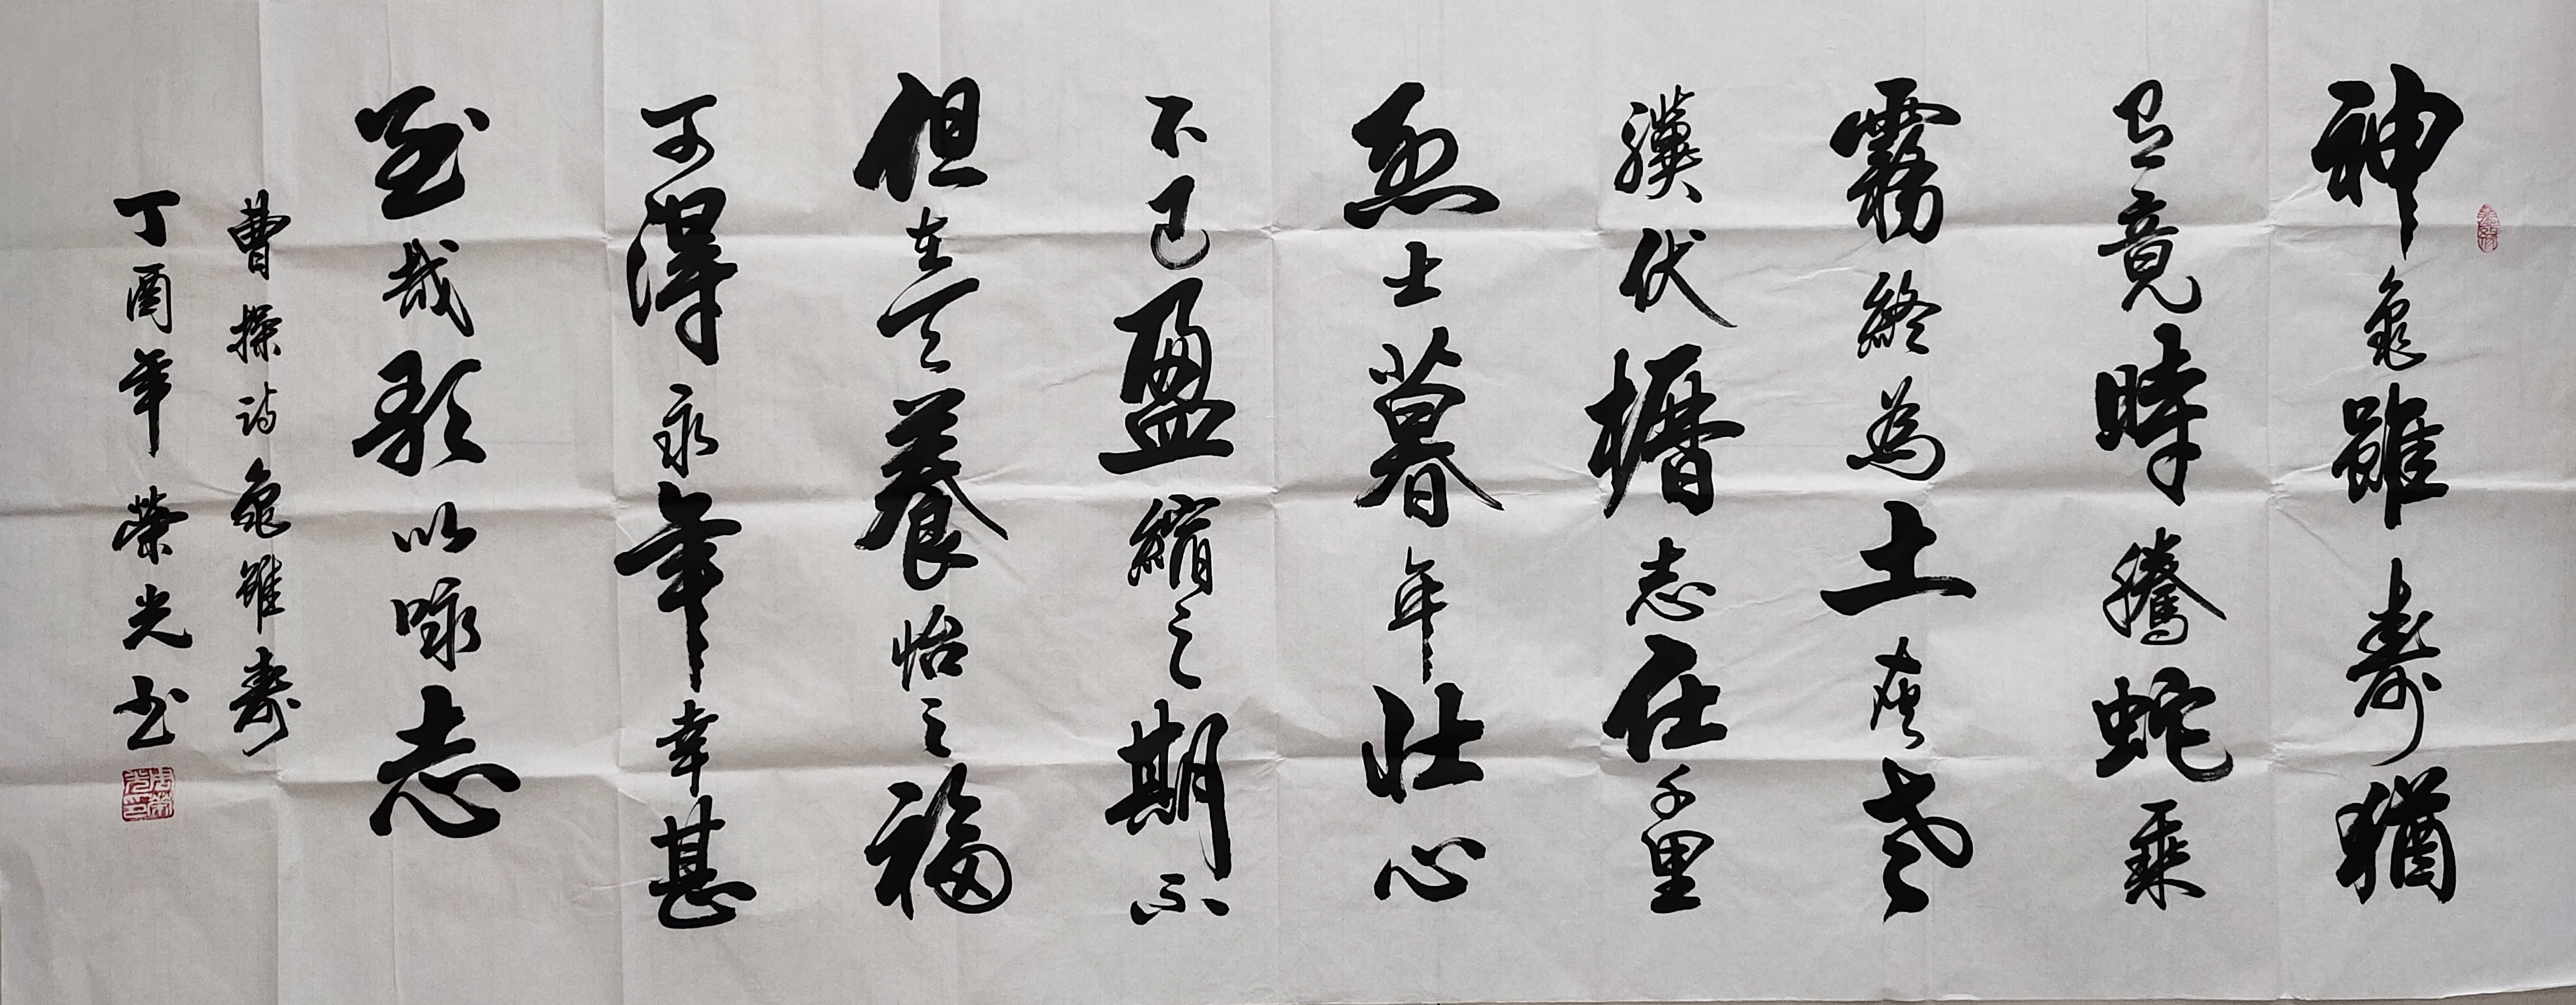 神龜雖壽猶
有竟時騰蛇乘
霧終為土灰老
驥伏櫪志在千里
烈士暮年壯心
不已盈縮之期不
但在天養怡之福
可得永年幸甚
至哉歌以咏志
曹操诗龜雖壽
丁酉年榮光书